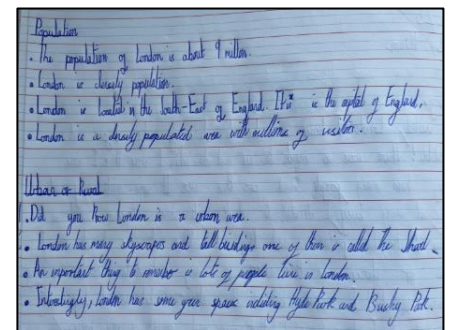 Population
• The population of London is about 9 millon.
• London is densely population.
• London is located in the South-East of England. It is is the capital of England.
• London is a densely populated area with millions of visitors.
Urban or Rural
• Did you know London is a urban area.
• London has many skyscrapes and tall buildings one of them is called The Shard.
• An important thing to remember is lots of people live in London.
• Interestingly, London has some green spaces including Hyde Park and Bushy Park.